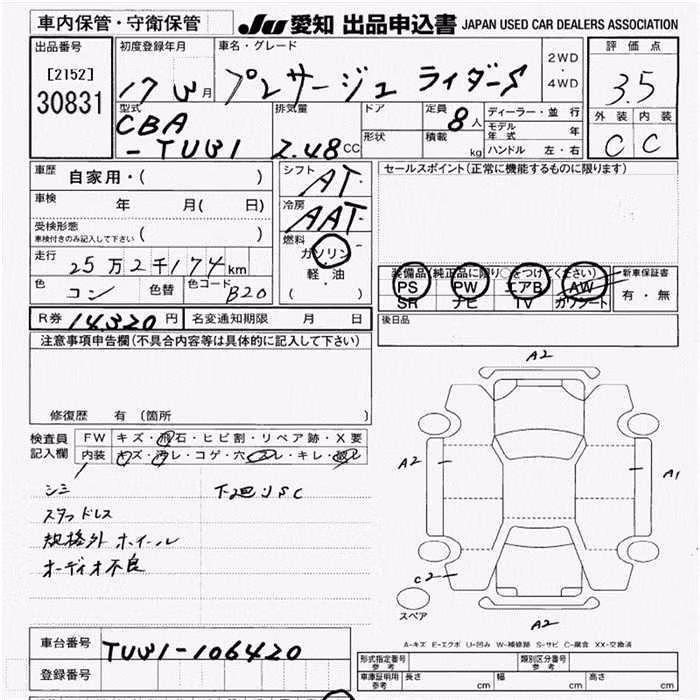 車内保管・守衛保管
JU 愛知 出品申込書 JAPAN USED CAR DEALERS ASSOCIATION
出品番号
[2152]
30831
初度登録年月
17 3月
車名・グレード
プレサージュ ライダーS
2WD
・
4WD
評価点
3.5
外装 内装
C C
型式
CBA
-TU31
排気量
2.48CC
ドア
形状
定員
8人
積載
kg
ディーラー・並行
モデル年式 年
ハンドル 左・右
車歴
自家用・( )
車検
年 月( 日)
受検形態
車検付きのみ記入して下さい
( )
走行
25万2千174km
色
コン
色替
色コード
B20
シフト
AT
冷房
AAT
燃料
ガソリン
軽・油
( )
セールスポイント(正常に機能するものに限ります)
装備品(純正品に限り○をつけてください)
PS PW エアB AW
SR ナビ TV カワシート
新車保証書
有・無
R券 14,320円
名変通知期限 月 日
後日品
注意事項申告欄(不具合内容等は具体的に記入して下さい)
修復歴 有(箇所 )
検査員
記入欄
FW キズ・飛石・ヒビ割・リペア跡・X要
内装 キズ・汚レ・コゲ・穴・
シミ
スタッドレス
規格外ホイール
オーディオ不良
下廻りSC
A2
A2
A1
C2
A2
スペア
A-キズ E-エクボ U-凹み W-補修跡 S-サビ C-腐食 XX-交換済
車台番号
TU31-106420
登録番号
形式指定番号
参考
類別区分番号
参考
車庫証明用
参考
長さ cm
幅 cm
高さ cm